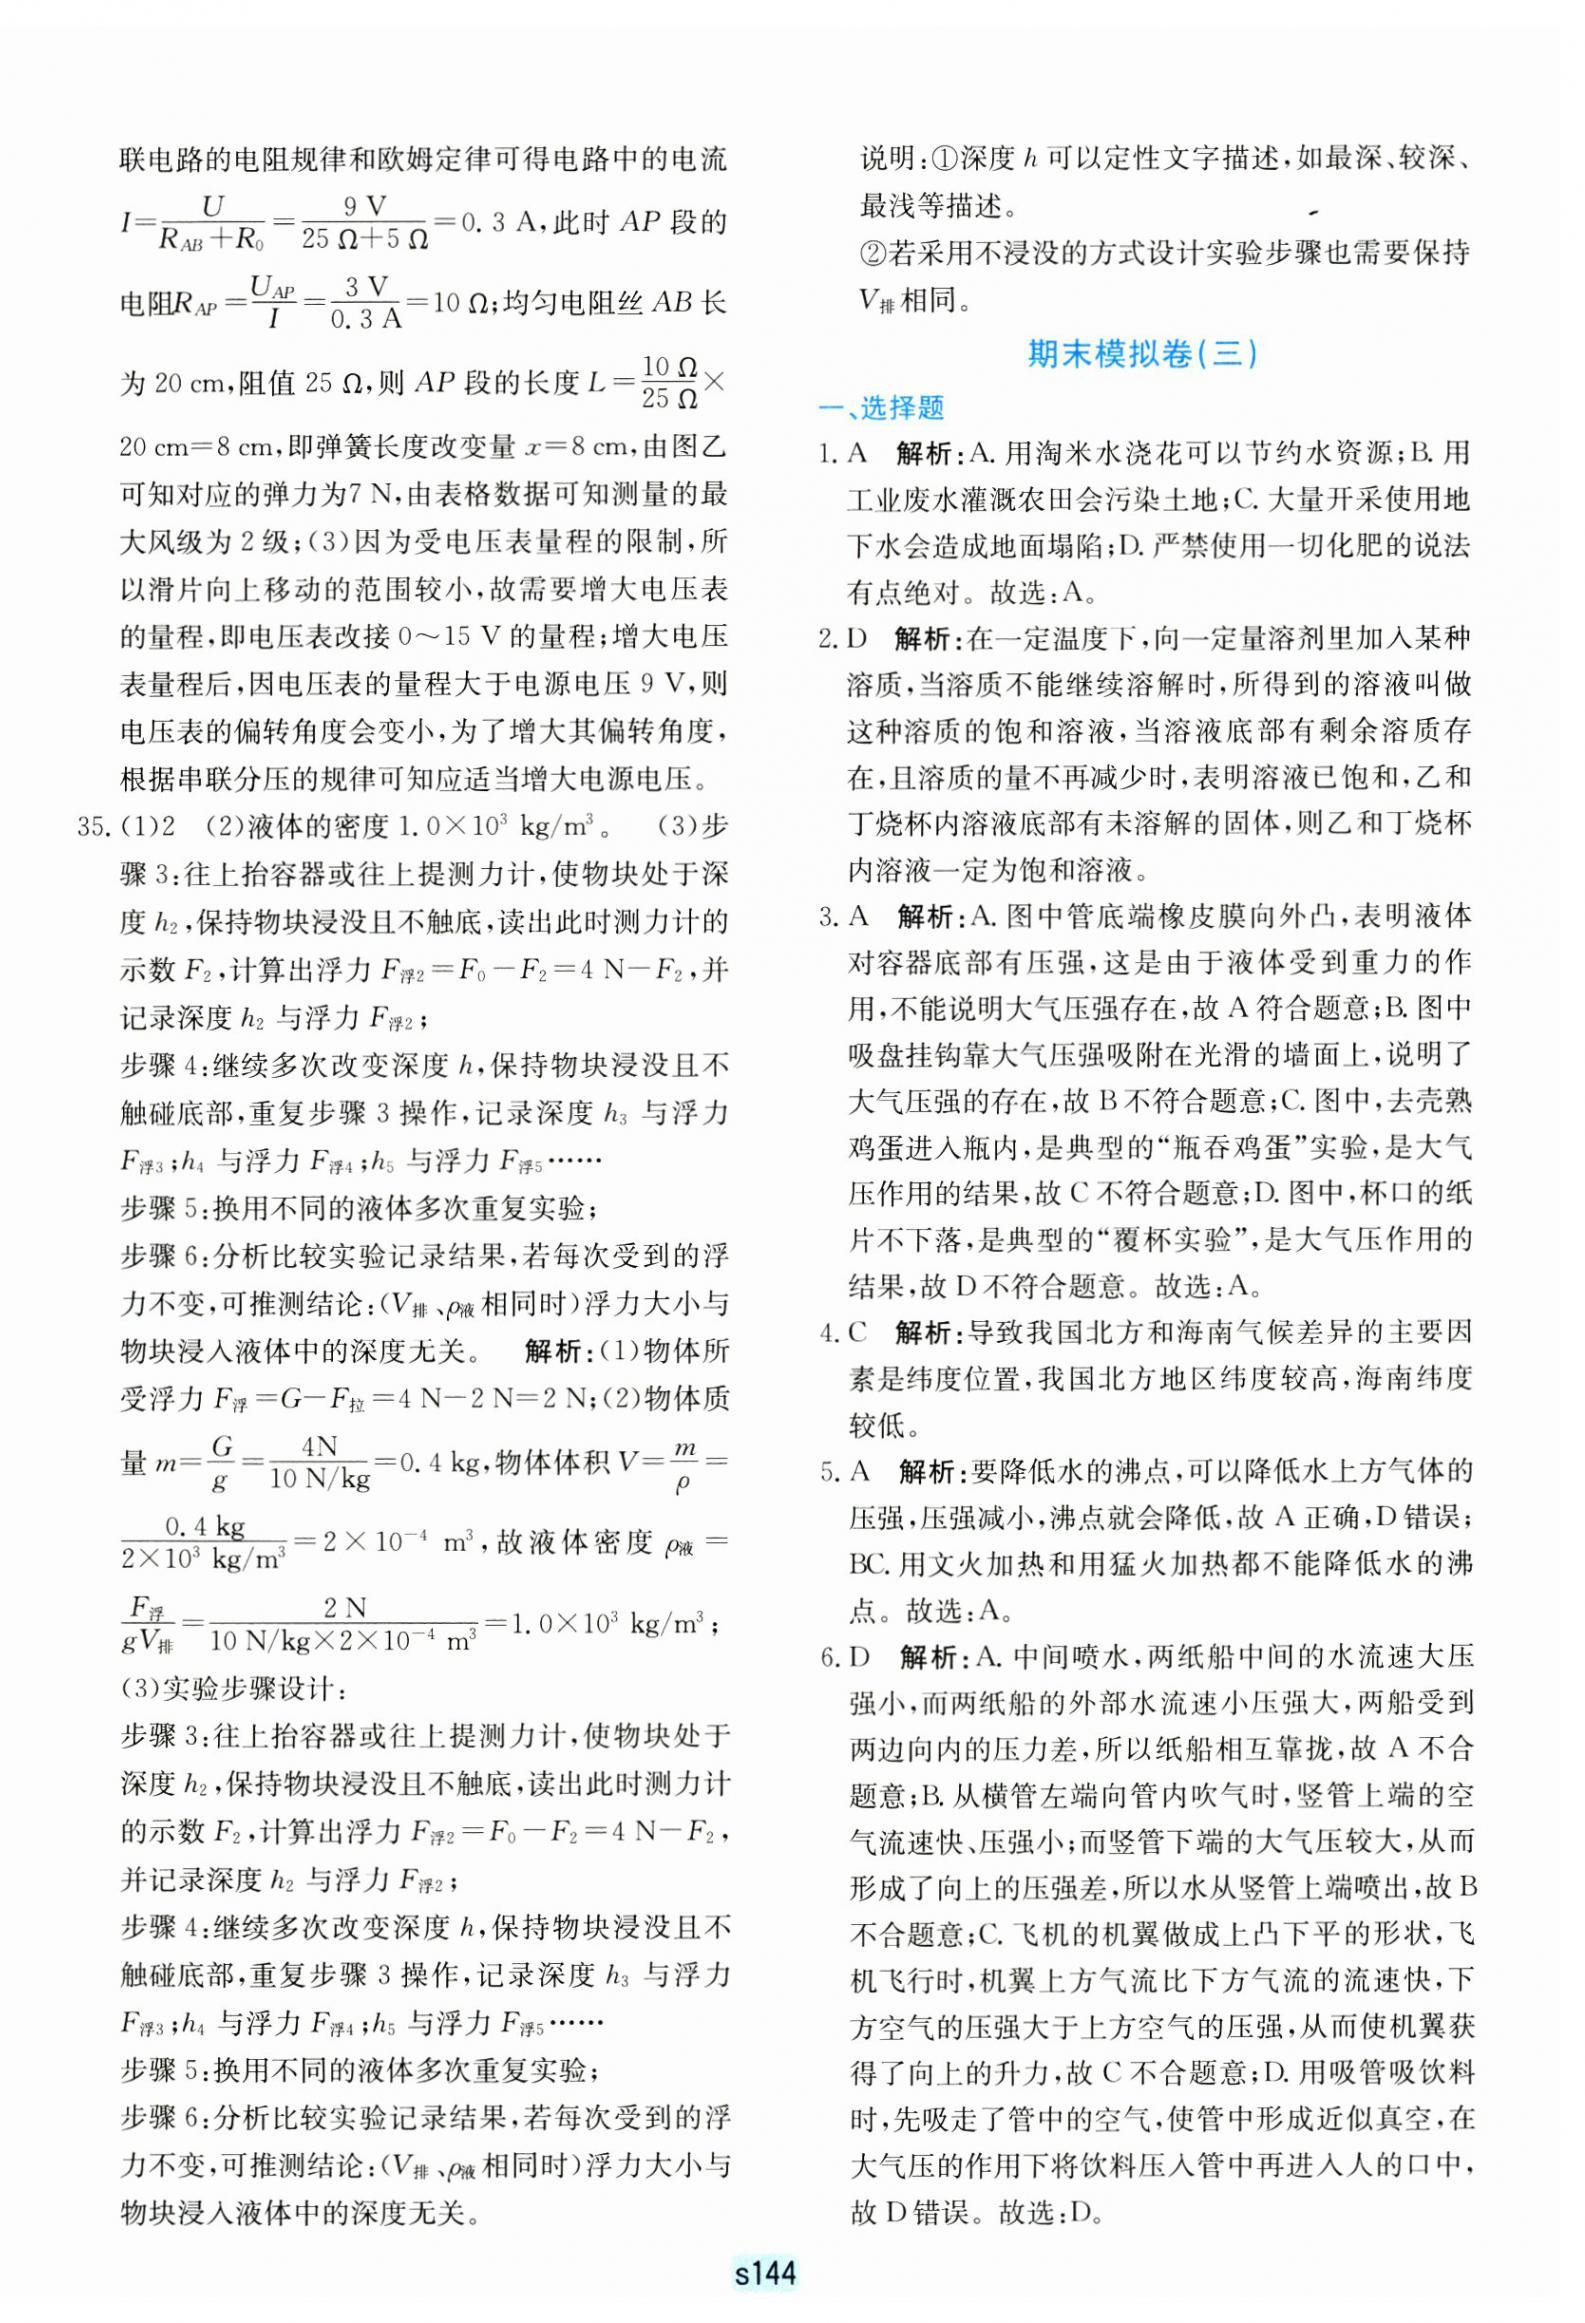 联电路的电阻规律和欧姆定律可得电路中的电流
I=U/(R_AB+R₀)=9 V/(25 Ω+5 Ω)=0.3 A,此时 AP 段的
电阻R_AP=U_AP/I=3 V/0.3 A=10 Ω;均匀电阻丝 AB 长
为 20 cm,阻值 25 Ω,则 AP 段的长度 L=10 Ω/25 Ω×
20 cm=8 cm,即弹簧长度改变量 x=8 cm,由图乙
可知对应的弹力为7 N,由表格数据可知测量的最
大风级为 2 级;(3)因为受电压表量程的限制,所
以滑片向上移动的范围较小,故需要增大电压表
的量程,即电压表改接 0～15 V 的量程;增大电压
表量程后,因电压表的量程大于电源电压 9 V,则
电压表的偏转角度会变小,为了增大其偏转角度,
根据串联分压的规律可知应适当增大电源电压。
35.(1)2 (2)液体的密度 1.0×10³ kg/m³。 (3)步
骤 3:往上抬容器或往上提测力计,使物块处于深
度 h₂,保持物块浸没且不触底,读出此时测力计的
示数 F₂,计算出浮力 F浮2=F₀-F₂=4 N-F₂,并
记录深度 h₂ 与浮力 F浮2;
步骤 4:继续多次改变深度 h,保持物块浸没且不
触碰底部,重复步骤 3 操作,记录深度 h₃ 与浮力
F浮3;h₄ 与浮力 F浮4;h₅ 与浮力 F浮5……
步骤 5:换用不同的液体多次重复实验;
步骤 6:分析比较实验记录结果,若每次受到的浮
力不变,可推测结论:(V排、ρ液相同时)浮力大小与
物块浸入液体中的深度无关。 解析:(1)物体所
受浮力 F浮=G-F拉=4 N-2 N=2 N;(2)物体质
量 m=G/g=4N/(10 N/kg)=0.4 kg,物体体积 V=m/ρ=
0.4 kg/(2×10³ kg/m³)=2×10⁻⁴ m³,故液体密度 ρ液=
F浮/(gV排)=2 N/(10 N/kg×2×10⁻⁴ m³)=1.0×10³ kg/m³;
(3)实验步骤设计:
步骤 3:往上抬容器或往上提测力计,使物块处于
深度 h₂,保持物块浸没且不触底,读出此时测力计
的示数 F₂,计算出浮力 F浮2=F₀-F₂=4 N-F₂,
并记录深度 h₂ 与浮力 F浮2;
步骤 4:继续多次改变深度 h,保持物块浸没且不
触碰底部,重复步骤 3 操作,记录深度 h₃ 与浮力
F浮3;h₄ 与浮力 F浮4;h₅ 与浮力 F浮5……
步骤 5:换用不同的液体多次重复实验;
步骤 6:分析比较实验记录结果,若每次受到的浮
力不变,可推测结论:(V排、ρ液相同时)浮力大小与
物块浸入液体中的深度无关。
说明:①深度 h 可以定性文字描述,如最深、较深、
最浅等描述。
②若采用不浸没的方式设计实验步骤也需要保持
V排相同。
期末模拟卷(三)
一、选择题
1.A 解析:A.用淘米水浇花可以节约水资源;B.用
工业废水灌溉农田会污染土地;C.大量开采使用地
下水会造成地面塌陷;D.严禁使用一切化肥的说法
有点绝对。故选:A。
2.D 解析:在一定温度下,向一定量溶剂里加入某种
溶质,当溶质不能继续溶解时,所得到的溶液叫做
这种溶质的饱和溶液,当溶液底部有剩余溶质存
在,且溶质的量不再减少时,表明溶液已饱和,乙和
丁烧杯内溶液底部有未溶解的固体,则乙和丁烧杯
内溶液一定为饱和溶液。
3.A 解析:A.图中管底端橡皮膜向外凸,表明液体
对容器底部有压强,这是由于液体受到重力的作
用,不能说明大气压强存在,故 A 符合题意;B.图中
吸盘挂钩靠大气压强吸附在光滑的墙面上,说明了
大气压强的存在,故 B 不符合题意;C.图中,去壳熟
鸡蛋进入瓶内,是典型的“瓶吞鸡蛋”实验,是大气
压作用的结果,故 C 不符合题意;D.图中,杯口的纸
片不下落,是典型的“覆杯实验”,是大气压作用的
结果,故 D 不符合题意。故选:A。
4.C 解析:导致我国北方和海南气候差异的主要因
素是纬度位置,我国北方地区纬度较高,海南纬度
较低。
5.A 解析:要降低水的沸点,可以降低水上方气体的
压强,压强减小,沸点就会降低,故 A 正确,D 错误;
BC.用文火加热和用猛火加热都不能降低水的沸
点。故选:A。
6.D 解析:A.中间喷水,两纸船中间的水流速大压
强小,而两纸船的外部水流速小压强大,两船受到
两边向内的压力差,所以纸船相互靠拢,故 A 不合
题意;B.从横管左端向管内吹气时,竖管上端的空
气流速快、压强小;而竖管下端的大气压较大,从而
形成了向上的压强差,所以水从竖管上端喷出,故 B
不合题意;C.飞机的机翼做成上凸下平的形状,飞
机飞行时,机翼上方气流比下方气流的流速快,下
方空气的压强大于上方空气的压强,从而使机翼获
得了向上的升力,故 C 不合题意;D.用吸管吸饮料
时,先吸走了管中的空气,使管中形成近似真空,在
大气压的作用下将饮料压入管中再进入人的口中,
故 D 错误。故选:D。
s144